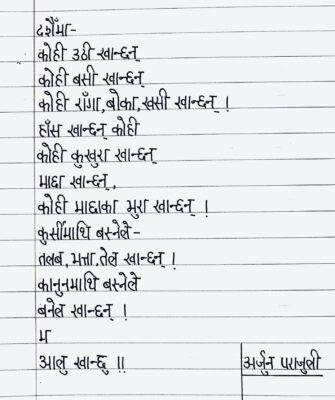 दशैँमा-
कोही उठी खान्छन्
कोही बसी खान्छन्
कोही राँगा, बोका, खसी खान्छन् !
हाँस खान्छन् कोही
कोही कुखुरा खान्छन्
माछा खान्छन्,
कोही माछाका भुरा खान्छन् !
कुर्सीमाथि बस्नेले -
तलब, भत्ता, तेल खान्छन् !
कानुनमाथि बस्नेले
बनेल खान्छन् !
म
आलु खान्छु !!
अर्जुन पराजुली